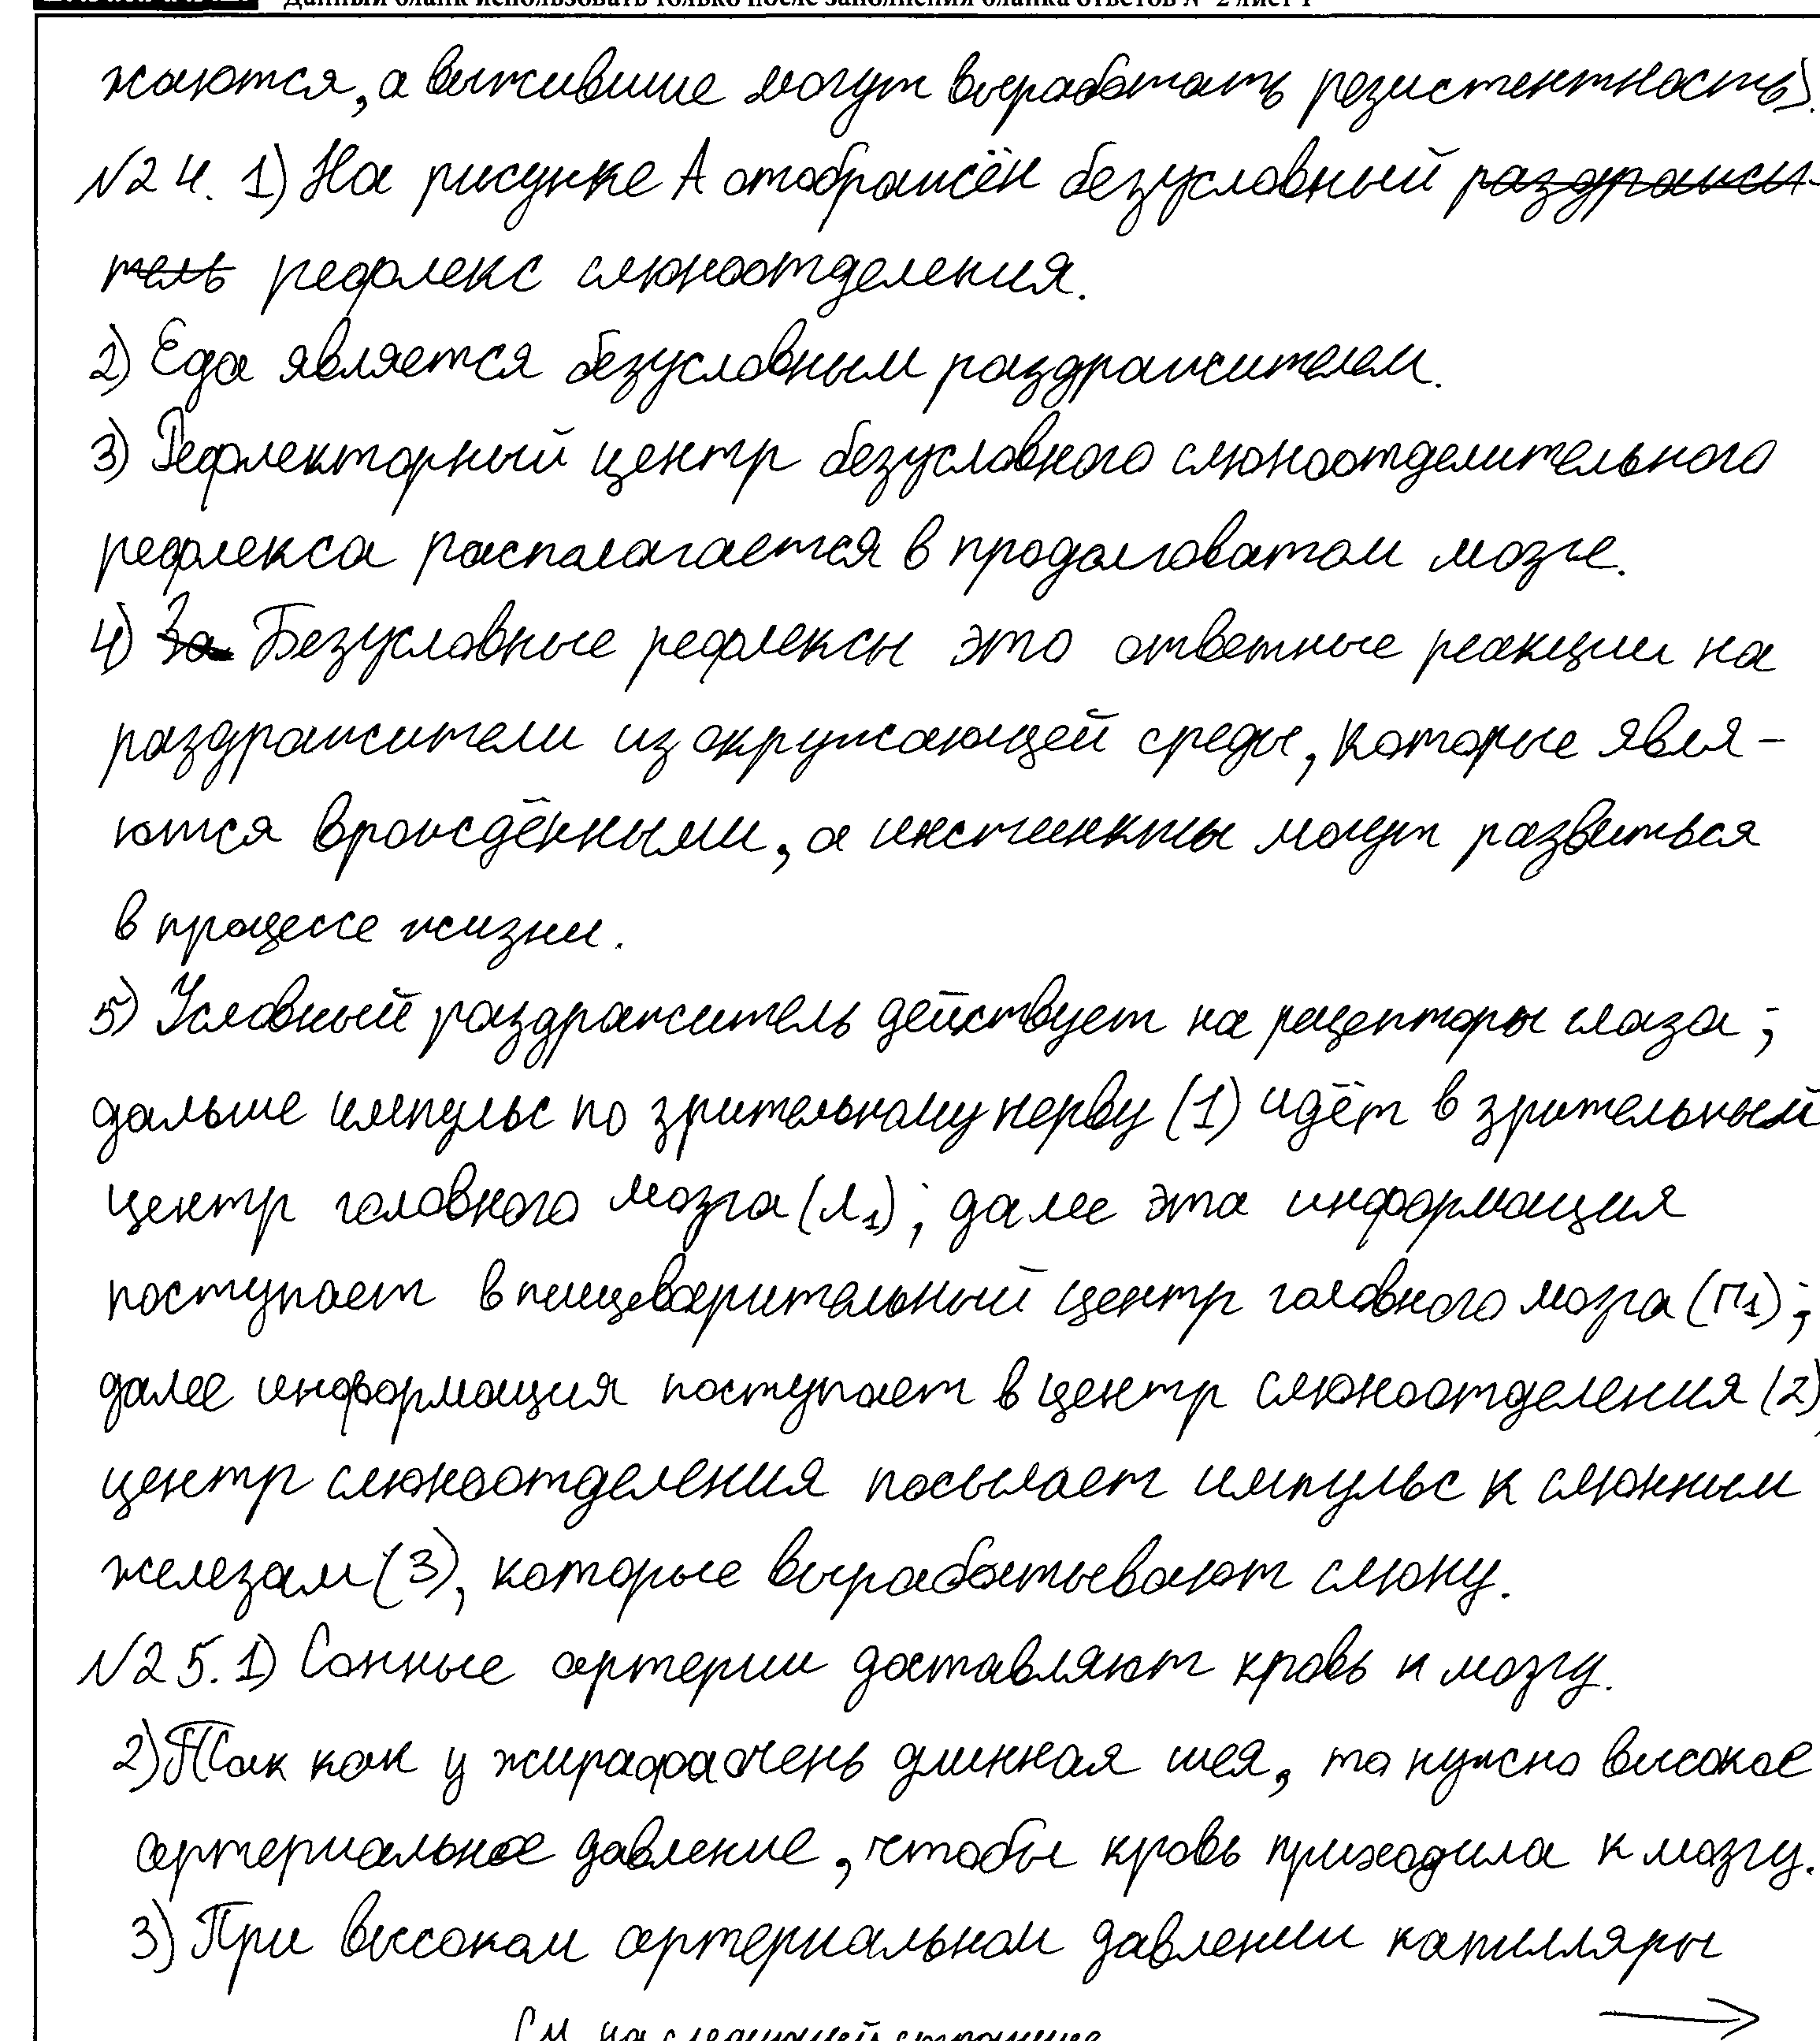 Данный бланк использовать только после заполнения бланка ответов № 2 лист 1
жаются, а выжившие могут выработать резистентность).
№24. 1) На рисунке А отображён безусловный раздражи-
тель рефлекс слюноотделения.
2) Еда является безусловным раздражителем.
3) Рефлекторный центр безусловного слюноотделительного
рефлекса располагается в продолговатом мозге.
4) За Безусловные рефлексы это ответные реакции на
раздражители из окружающей среды, которые явля-
ются врождёнными, а инстинкты могут развиться
в процессе жизни.
5) Условный раздражитель действует на рецепторы глаза;
дальше импульс по зрительному нерву (1) идёт в зрительный
центр головного мозга (Л1); далее эта информация
поступает в пищеварительный центр головного мозга (П1);
далее информация поступает в центр слюноотделения (2)
центр слюноотделения посылает импульс к слюнным
железам (3), которые вырабатывают слюну.
№25. 1) Сонные артерии доставляют кровь к мозгу.
2) Так как у жирафа очень длинная шея, то нужно высокое
артериальное давление, чтобы кровь приходила к мозгу.
3) При высоком артериальном давлении капилляры
См на следующей странице